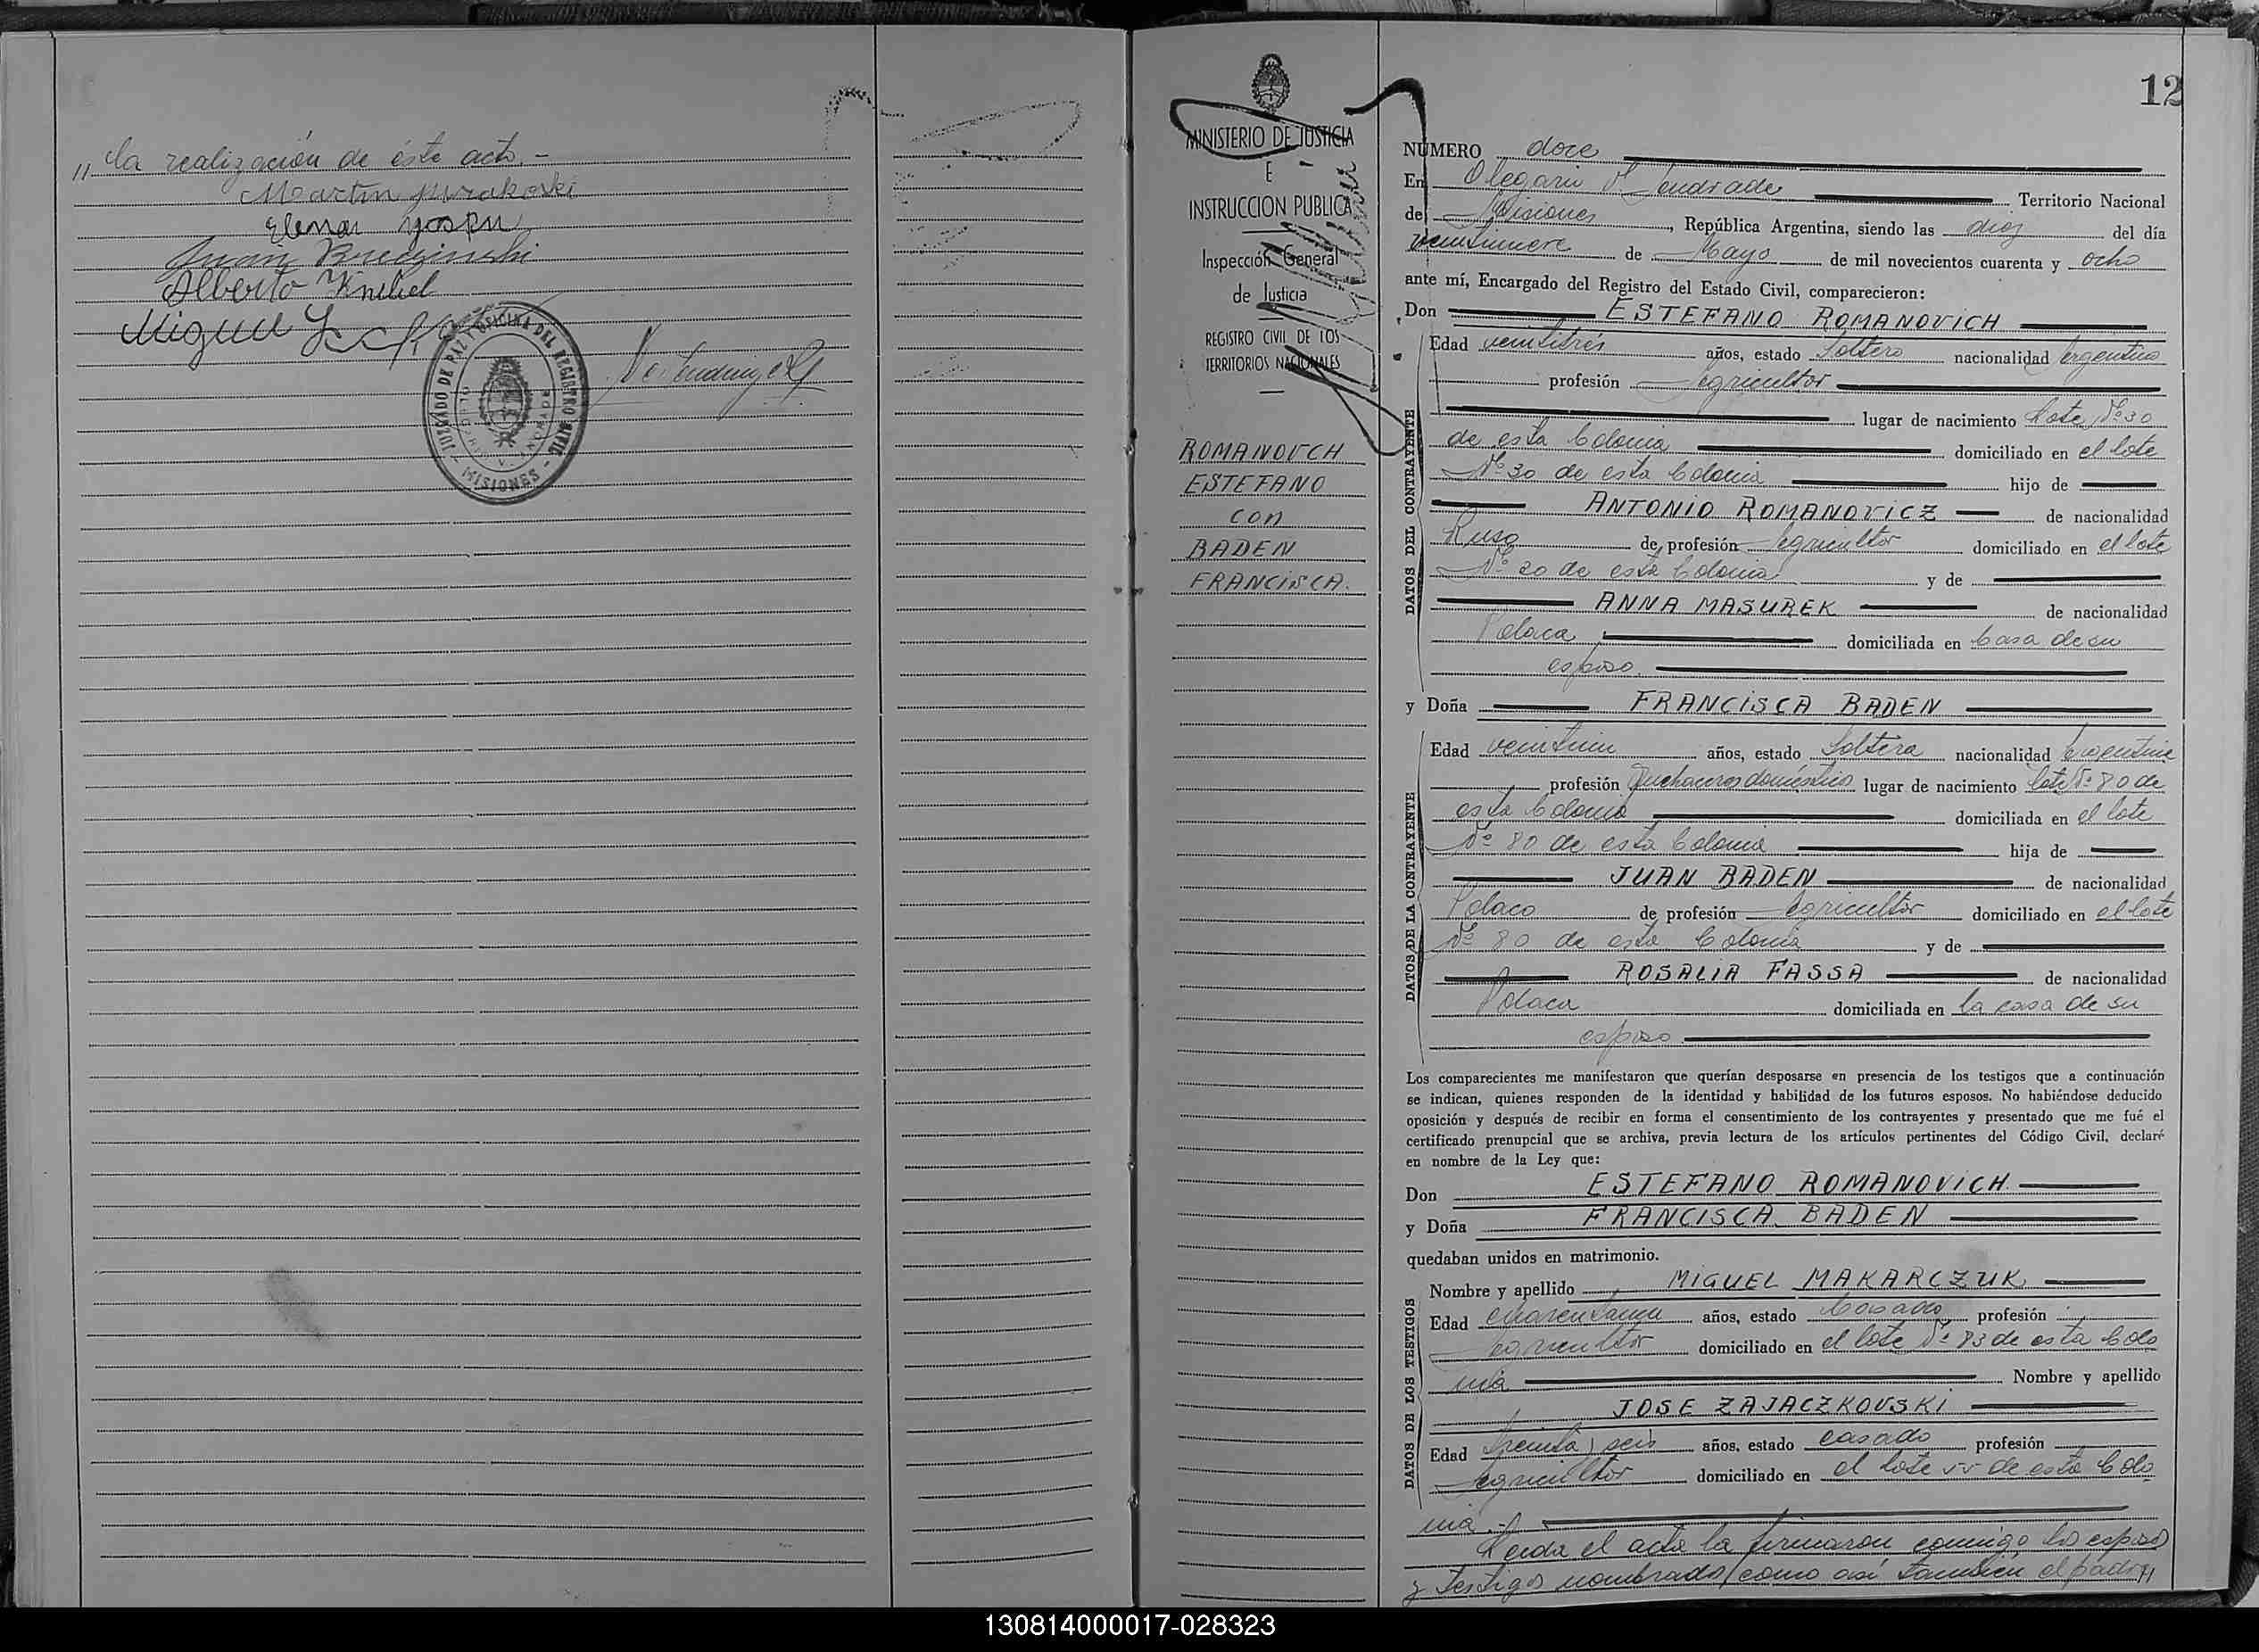 " la realización de éste acto.-
Martin
Elena
Juan
Alberto Knebel
Miguel
JUZGADO DE PAZ Y OFICINA DEL REGISTRO CIVIL
- MISIONES -
MINISTERIO DE JUSTICIA
E
INSTRUCCION PUBLICA
Inspección General
de Justicia
REGISTRO CIVIL DE LOS
TERRITORIOS NACIONALES
ROMANOVCH
ESTEFANO
CON
BADEN
FRANCISCA.
12
NÚMERO doce
En Olegario V. Andrade Territorio Nacional
de Misiones, República Argentina, siendo las diez del día
veintinueve de Mayo de mil novecientos cuarenta y ocho
ante mí, Encargado del Registro del Estado Civil, comparecieron:
Don ESTEFANO ROMANOVICH
DATOS DEL CONTRAYENTE
Edad veintitrés años, estado Soltero nacionalidad Argentino
profesión Agricultor
lugar de nacimiento Lote Nº 30
de esta Colonia domiciliado en el lote
Nº 30 de esta Colonia hijo de
ANTONIO ROMANOVICZ de nacionalidad
Ruso de profesión Agricultor domiciliado en el lote
Nº de esta Colonia y de
ANNA MASUREK de nacionalidad
Polaca domiciliada en Casa de su
esposo.
y Doña FRANCISCA BADEN
DATOS DE LA CONTRAYENTE
Edad veintiun años, estado Soltera nacionalidad Argentina
profesión Quehaceres domésticos lugar de nacimiento lote Nº 80 de
esta Colonia domiciliada en el lote
Nº 80 de esta Colonia hija de
JUAN BADEN de nacionalidad
Polaco de profesión Agricultor domiciliado en el lote
Nº 80 de esta Colonia y de
ROSALIA FASSA de nacionalidad
Polaca domiciliada en la casa de su
esposo
Los comparecientes me manifestaron que querían desposarse en presencia de los testigos que a continuación
se indican, quienes responden de la identidad y habilidad de los futuros esposos. No habiéndose deducido
oposición y después de recibir en forma el consentimiento de los contrayentes y presentado que me fué el
certificado prenupcial que se archiva, previa lectura de los artículos pertinentes del Código Civil, declaré
en nombre de la Ley que:
Don ESTEFANO ROMANOVICH
y Doña FRANCISCA BADEN
quedaban unidos en matrimonio.
DATOS DE LOS TESTIGOS
Nombre y apellido MIGUEL MAKARCZUK
Edad años, estado Casado profesión
Agricultor domiciliado en el lote Nº 83 de esta Colo
nia Nombre y apellido
JOSE ZAJACZKOVSKI
Edad treinta y seis años, estado casado profesión
Agricultor domiciliado en el lote 55 de esta Colo
nia.-
Leida el acta la firmaron conmigo los esposos
y testigos nombrados como así también el padre
130814000017-028323